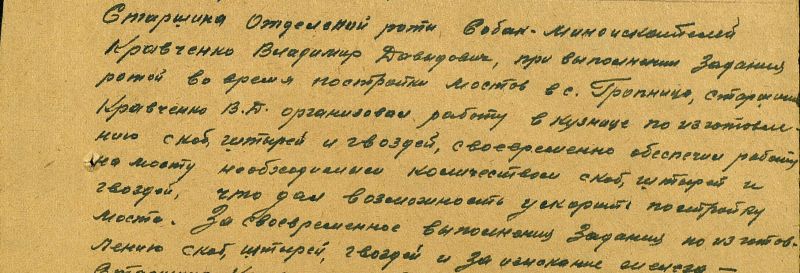 Старшина Отдельной роты Собак-Миноискателей
Кравченко Владимир Давыдович, при выполнении Задания
ротой во время постройки мостов в с. Тропница, старшина
Кравченко В.Д. организовал работу в кузнице по изготовле-
нию скоб, штырей и гвоздей, своевременно обеспечил работу
на мосту необходимым количеством скоб, штырей и
гвоздей, что дал возможность ускорить постройку
моста. За своевременное выполнения Задания по изготов-
лению скоб, штырей, гвоздей и за
Старшина